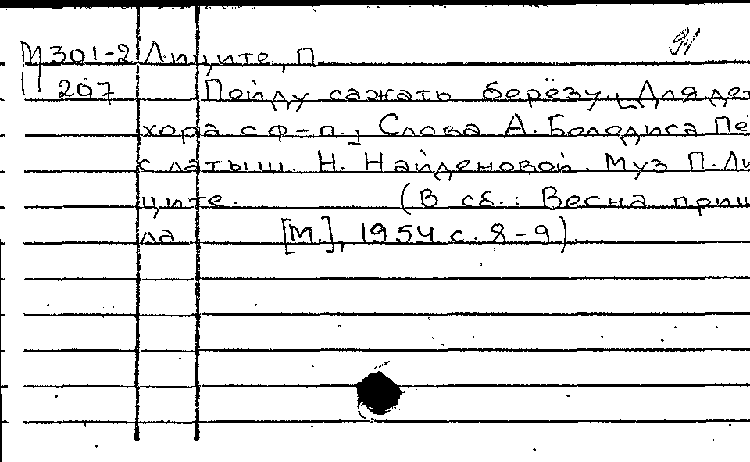 91
М 301-2 Лиците, П.
207 Пойду сажать берёзу. Для дет
хора с ф-п., Слова А. Болодиса Пе
с латыш. Н. Найденовой. Муз П. Ли
ците. (В сб.: Весна приш
ла [М.], 1954 с. 8-9)